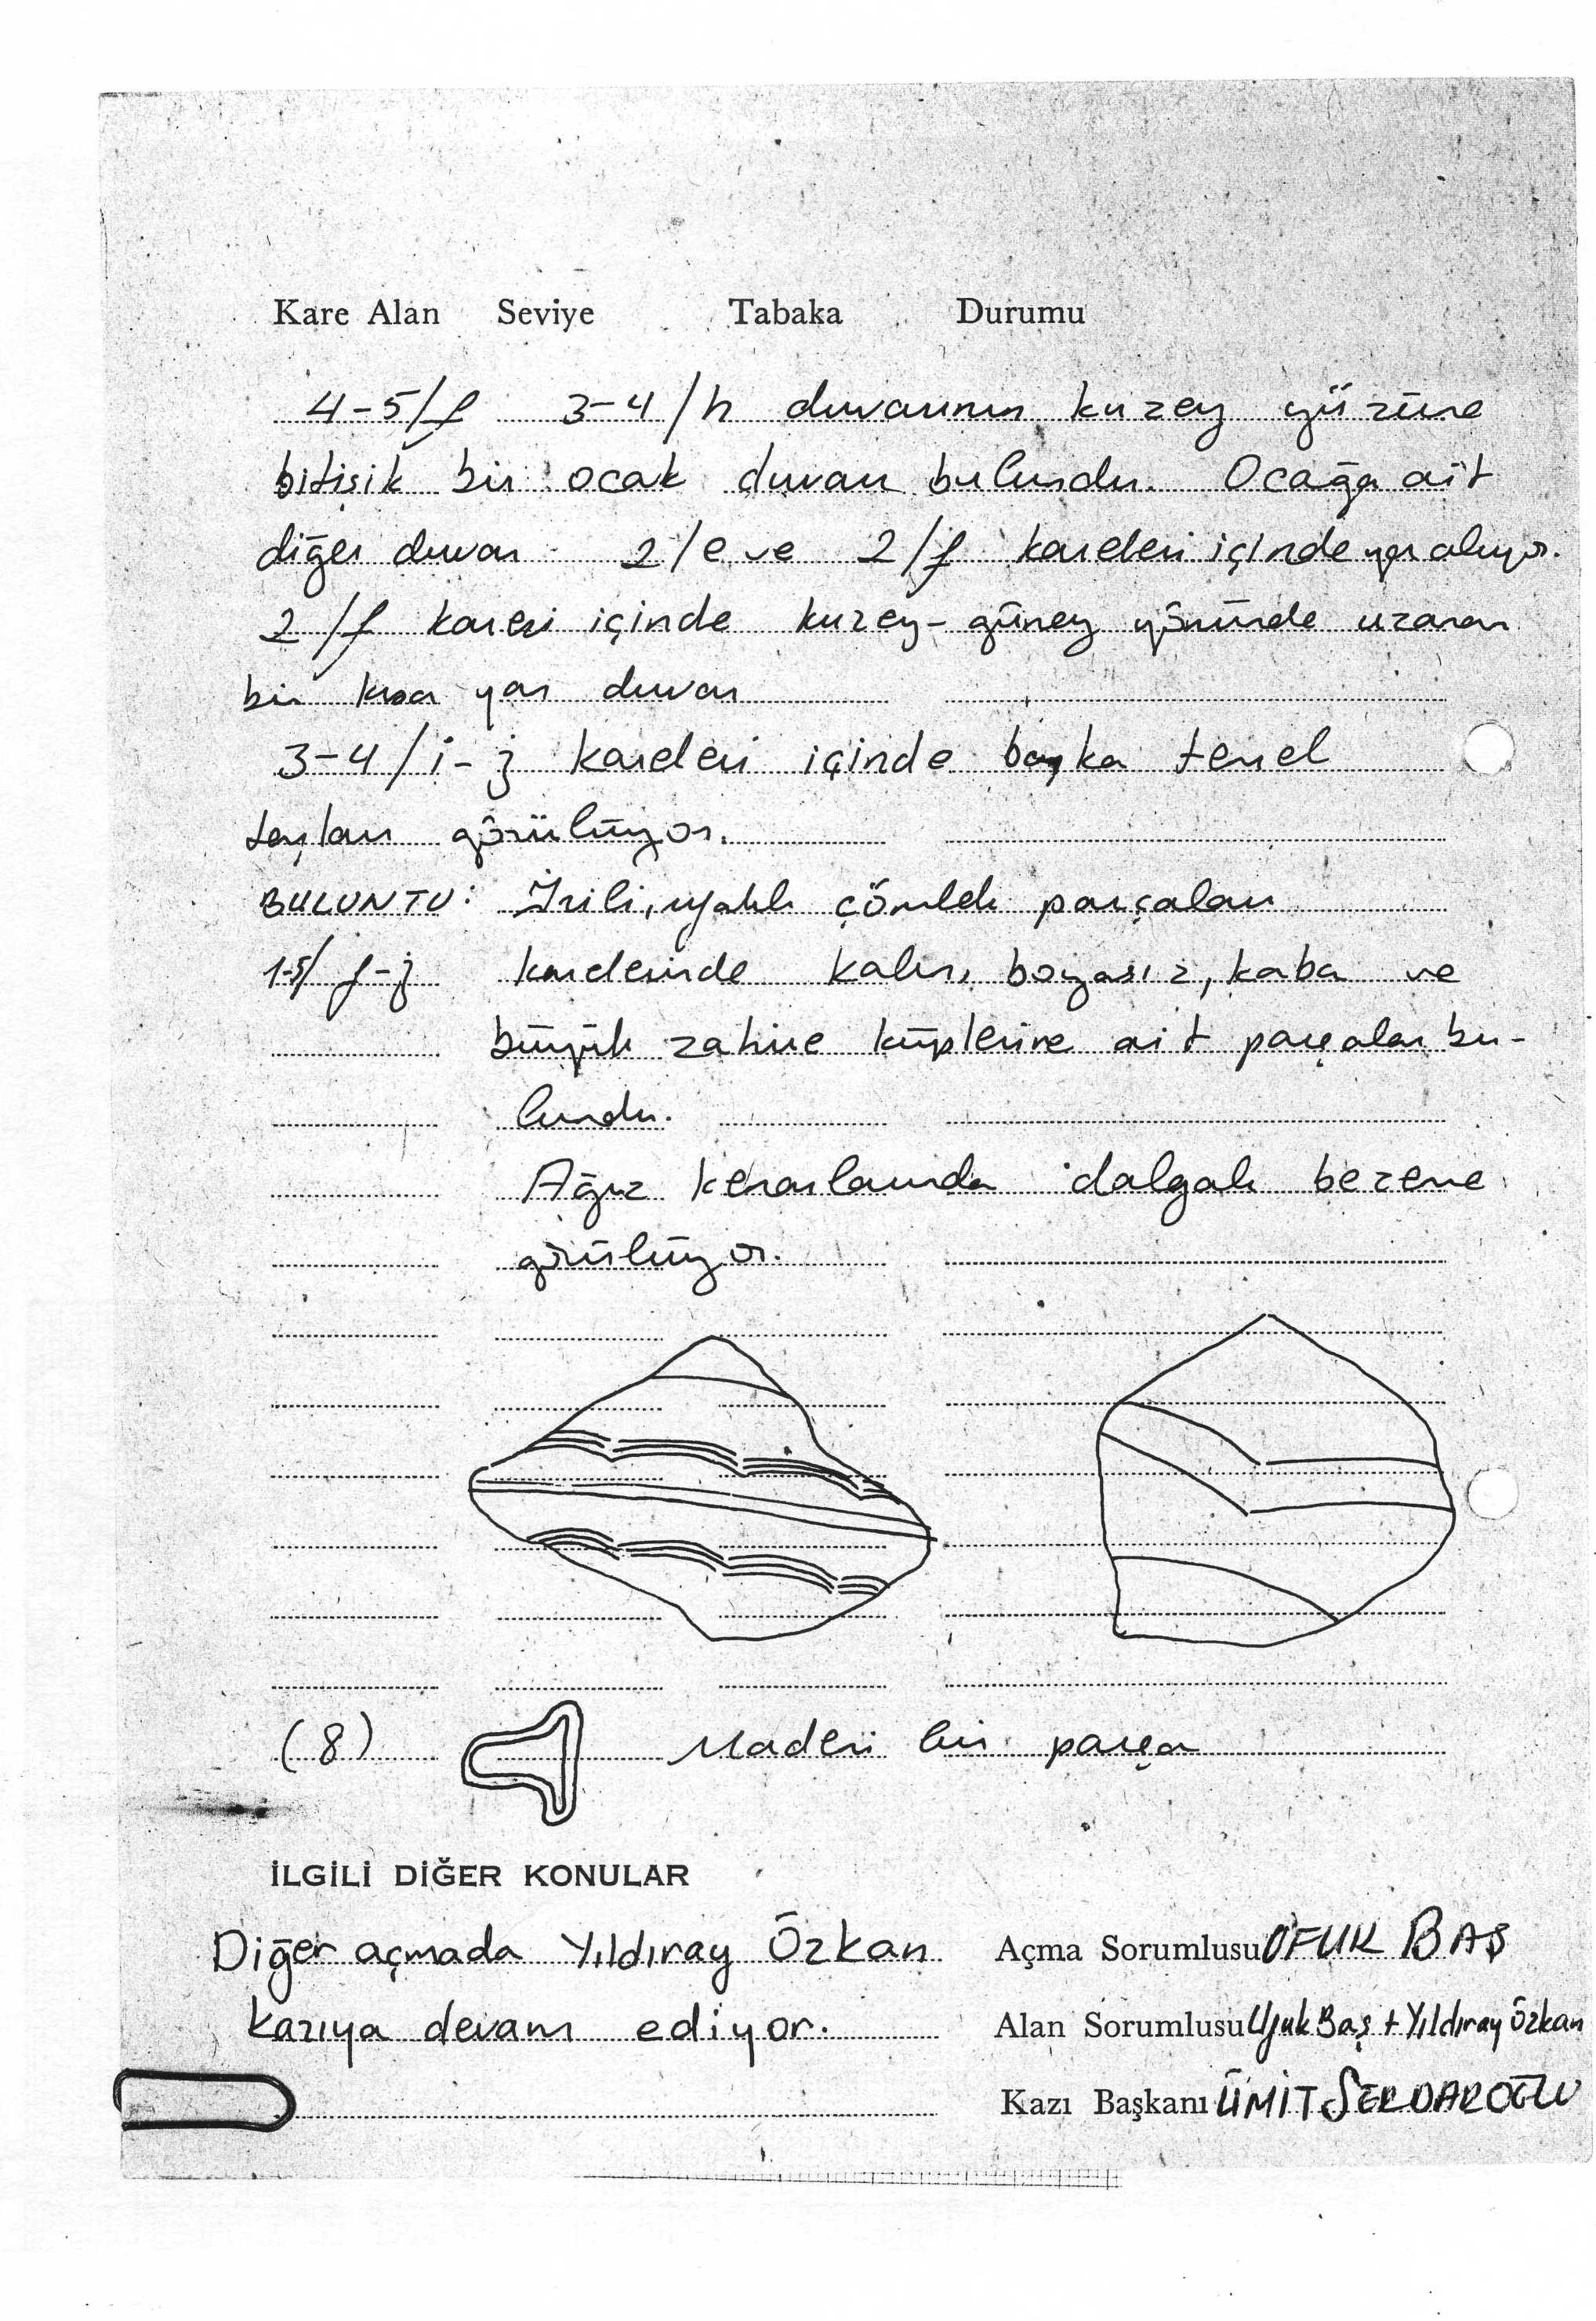 Kare Alan Seviye Tabaka Durumu
4-5/f 3-4/h duvarının kuzey yüzüne
bitişik bir ocak duvarı bulundu. Ocağa ait
diğer duvar 2/e ve 2/f kareleri içinde yer alıyor.
2/f karesi içinde kuzey-güney yönünde uzanan
bir kısa yan duvar
3-4/i-j kareleri içinde başka temel
taşları görülüyor.
BULUNTU: çömlek parçaları
1-5/f-j karelerinde kalın, boyasız, kaba ve
büyük zahire küplerine ait parçalar bu-
lundu.
Ağız kenarlarında dalgalı bezeme
görülüyor.
(8) Madeni bir parça
İLGİLİ DİĞER KONULAR
Diğer açmada Yıldıray Özkan
kazıya devam ediyor.
Açma Sorumlusu UFUK BAŞ
Alan Sorumlusu Ufuk Baş + Yıldıray Özkan
Kazı Başkanı ÜMİT SERDAROĞLU